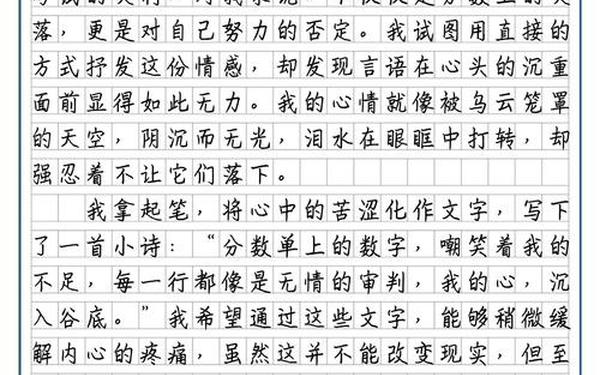 落，更是对自己努力的否定。我试图用直接的
方式抒发这份情感，却发现言语在心头的沉重
面前显得如此无力。我的心情就像被乌云笼罩
的天空，阴沉而无光，泪水在眼眶中打转，却
强忍着不让它们落下。
我拿起笔，将心中的苦涩化作文字，写下
了一首小诗：“分数单上的数字，嘲笑着我的
不足，每一行都像是无情的审判，我的心，沉
入谷底。”我希望通过这些文字，能够稍微缓
解内心的疼痛，虽然这并不能改变现实，但至